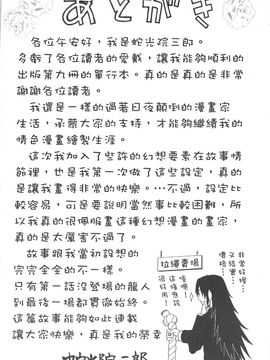 あとがき
各位午安好，我是蛇光院三郎。
多虧了各位讀者的愛戴，讓我能夠順利的
出版第九冊的單行本。真的是真的是非常
謝謝各位讀者。
我還是一樣的過著日夜顛倒的漫畫家
生活，承蒙大家的支持，才能夠繼續我的
情色漫畫繪製生涯。
這次我加入了些許的幻想要素在故事情
節裡，也是我第一次做了這些設定，真的
是讓我畫得非常的快樂。…不過，設定比
較容易，可是要說明當然事比較困難，所
以我真的很佩服畫這種幻想漫畫的畫家，
真的是太厲害不過了。
故事跟我當初設想的
完完全全的不一樣。
只有第一話沒登場的龍人
到最後一場都貫徹始終。
這篇故事能夠如此連載
讓大家快樂，真是我的榮幸
蛇光院三郎
拉繩賣場
非常好握
又結實…
價格…